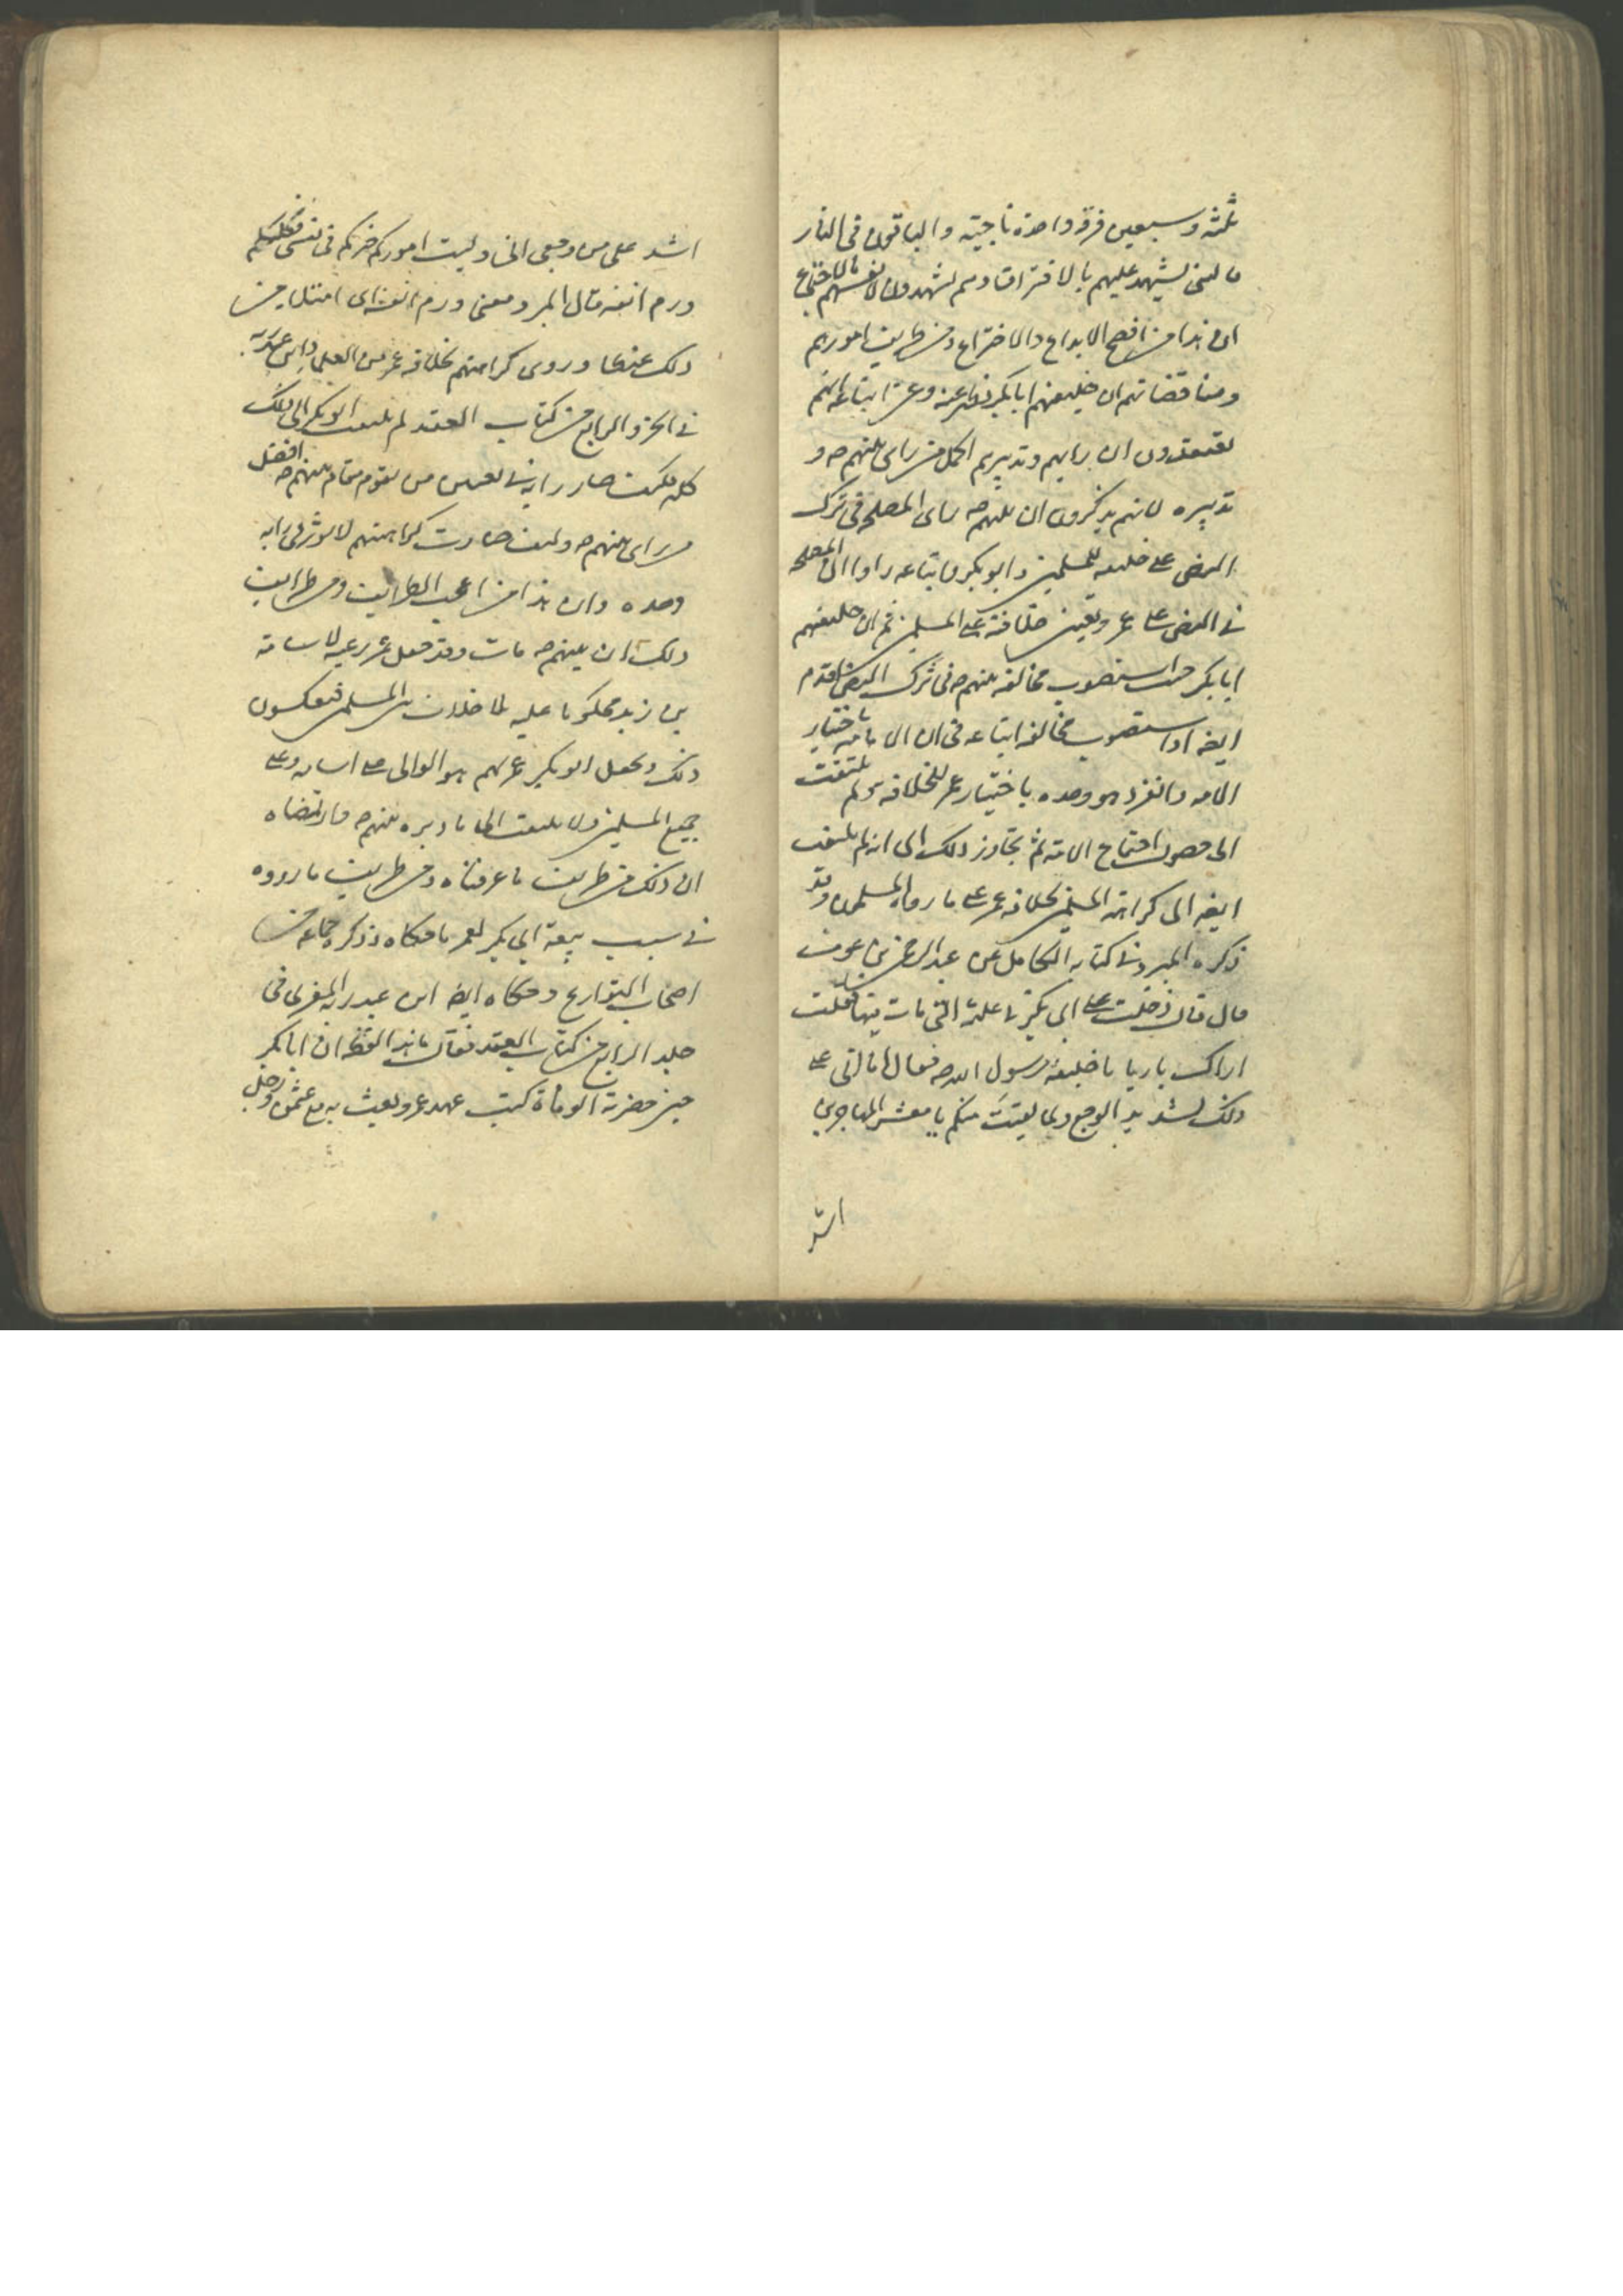 ثلثه وسبعين فرقه واحدة ناجيته والباقون فى النار
فالنبى يشهد عليهم بالافتراق وهم يشهدون لانفسهم بالاجتماع
ان هذا من اقبح الابداع والاختراع ومن طرايف امورهم
ومناقضاتهم ان خليفتهم ابا بكر وعمر اتباعه انهم
يعتقدون ان رايهم وتدبيرهم اكمل من راى نبيهم ص و
تدبيره لانهم يذكرون ان نبيهم ص راى المصلحه فى ترك
النص على خليفه للمسلمين وابو بكر واتباعه راوا ان المصلحه
فى النص على عمر وتعيين خلافته على المسلمين ثم ان خليفتهم
ابا بكر حيث استصوب مخالفه نبيهم ص فى ترك النص قدم
ايضا استصوب مخالفه اتباعه فى ان الامامه باختيار
الامه وانفرد هو وحده باختيار عمر للخلافه ولم يلتفت
الى حصول اجتماع الامه ثم تجاوز ذلك الى انه لم يلتفت
ايضا الى كراهة المسلمين لخلافه عمر على ما رواه المسلمون وقد
ذكره المبرد فى كتابه الكامل عن عبد الرحمن بن عوف
قال قال دخلت على ابى بكر فى علته التى مات فيها فقلت
اراك باريا يا خليفة رسول الله ص فقال اما انى على
ذلك لشديد الوجع ولما لقيت منكم يا معشر المهاجرين
اشد
اشد على من وجعى انى وليت اموركم خيركم فى نفسى فكلكم
ورم انفه قال المبرد ومعنى ورم انفه اى امتلا من
ذلك غيظا وروى كراهتهم لخلافه عمر من العلما ابن عبد ربه
فى الجزو الرابع من كتاب العقد لم يلتفت ابو بكر الى ذلك
كله فكيف صار رايه فى تعيين من يقوم مقام نبيهم ص افضل
من راى نبيهم ص وكيف صارت كراهتهم لا توثر فى رايه
وحده وان هذا من اعجب الطرايف ومن طرايف
ذلك ان نبيهم ص مات وقد جعل عمر رعيه لاسامة
بن زيد محكوما عليه بلا خلاف بين المسلمين فيعكسون
ذلك ويجعل ابو بكر عمر لهم هو الوالى على اسامه وعلى
جميع المسلمين ولا يلتفت الى ما دبره نبيهم ص وارتضاه
ان ذلك من طريف ما عرفناه ومن طريف ما رووه
فى سبب بيعة ابى بكر لعمر ما حكاه وذكره جماعه من
اصحاب التواريخ وحكاه ايضا ابن عبد ربه المغربى فى
جلد الرابع من كتاب العقد فقال ما هذا لفظه ان ابا بكر
حين حضرته الوفاة كتب عهد عمر وبعث به مع عثمن ورجل